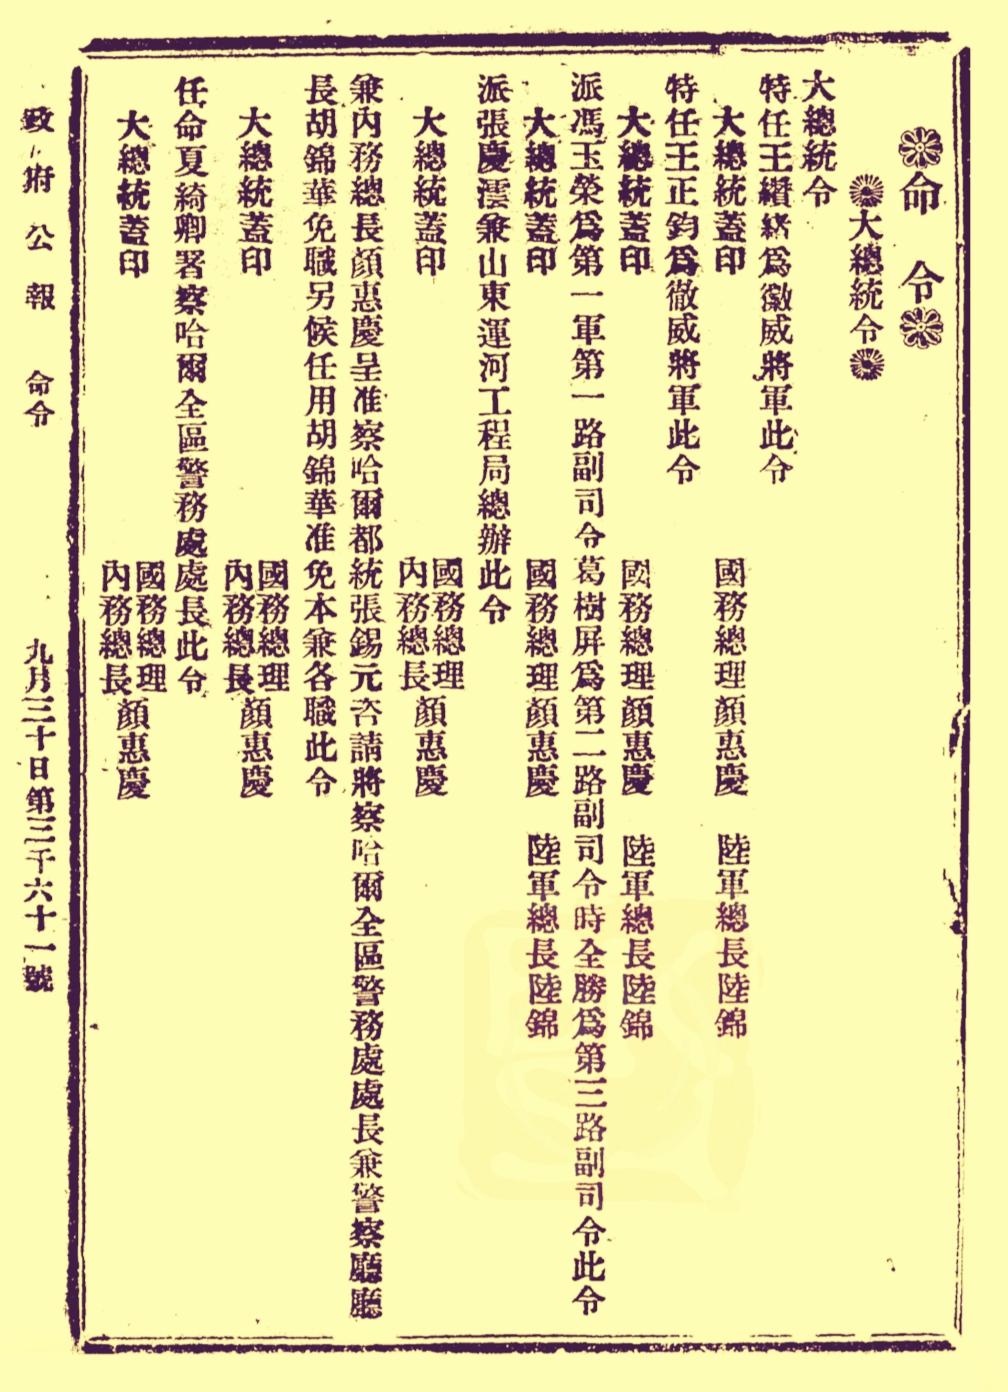 命令
大總統令
大總統令
特任王纘緒爲徽威將軍此令
大總統蓋印
國務總理顏惠慶 陸軍總長陸錦
特任王正鈞爲徹威將軍此令
大總統蓋印
國務總理顏惠慶 陸軍總長陸錦
派馮玉榮爲第一軍第一路副司令葛樹屏爲第二路副司令時全勝爲第三路副司令此令
大總統蓋印
國務總理顏惠慶 陸軍總長陸錦
派張慶澐兼山東運河工程局總辦此令
大總統蓋印
國務總理
內務總長顏惠慶
兼內務總長顏惠慶呈准察哈爾都統張錫元咨請將察哈爾全區警務處處長兼警察廳廳
長胡錦華免職另候任用胡錦華准免本兼各職此令
大總統蓋印
國務總理
內務總長顏惠慶
任命夏綺卿署察哈爾全區警務處處長此令
大總統蓋印
國務總理
內務總長顏惠慶
政府公報 命令 九月三十日第三千六十一號